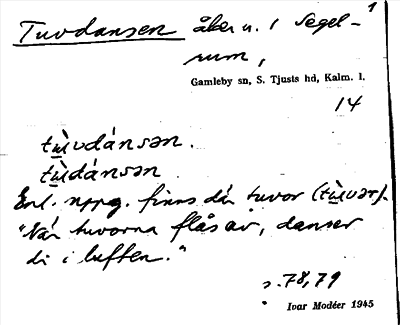 Tuvdansen åker n. i Segel- 1
rum,
Gamleby sn, S. Tjusts hd, Kalm. l.
14
tɯ̀vdánsən.
tɯ̀dánsən
Enl. uppg. finns där tuvor (tɯ̀vər).
"När tuvorna flås av, danser
di i luften."
s. 78, 79
Ivar Modéer 1945